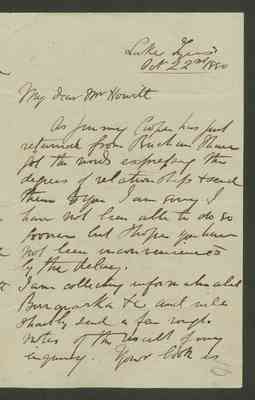 Lake Tyers
Oct 22nd 1880
My dear Mr Howitt
As Jimmy Cooper has just
returned from Buchan I have
got the words expressing the
degrees of relationship & send
them to you I am sorry I
have not been able to do so
sooner but I hope you have
not been inconvenienced
by the delay.
I am collecting inform about
&c and will
shortly send a few rough
notes of the result of my
inquiry. Your book is